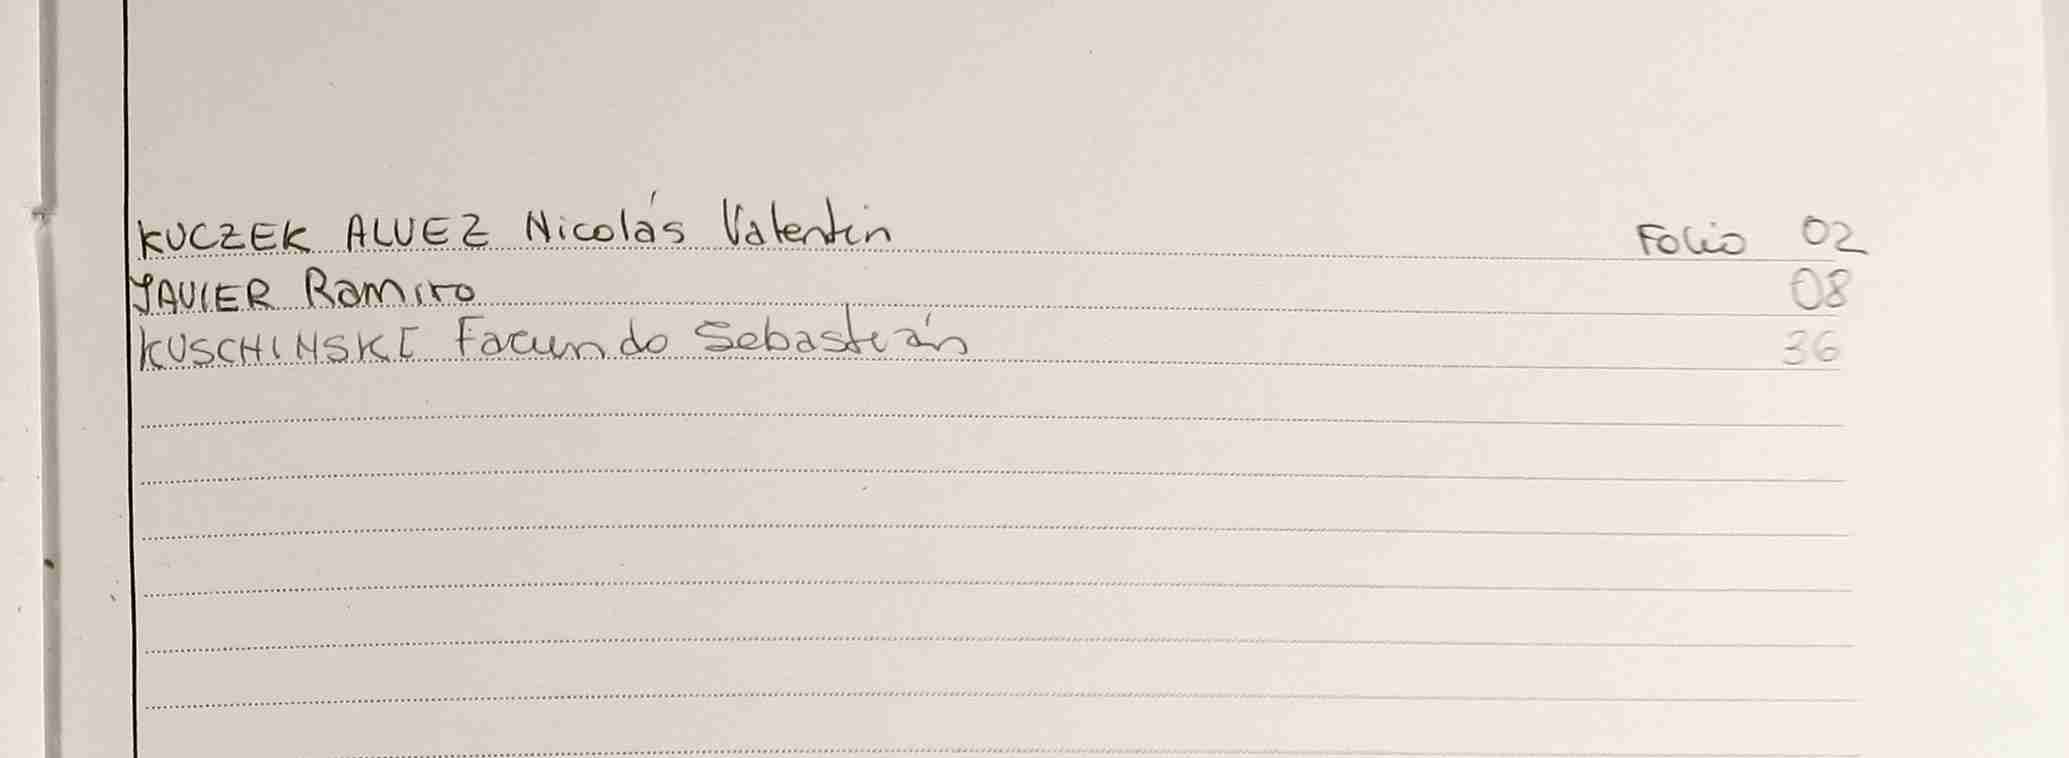 KUCZEK ALVEZ Nicolás Valentín Folio 02
JAVIER Ramiro 08
KUSCHINSKI Facundo Sebastián 36